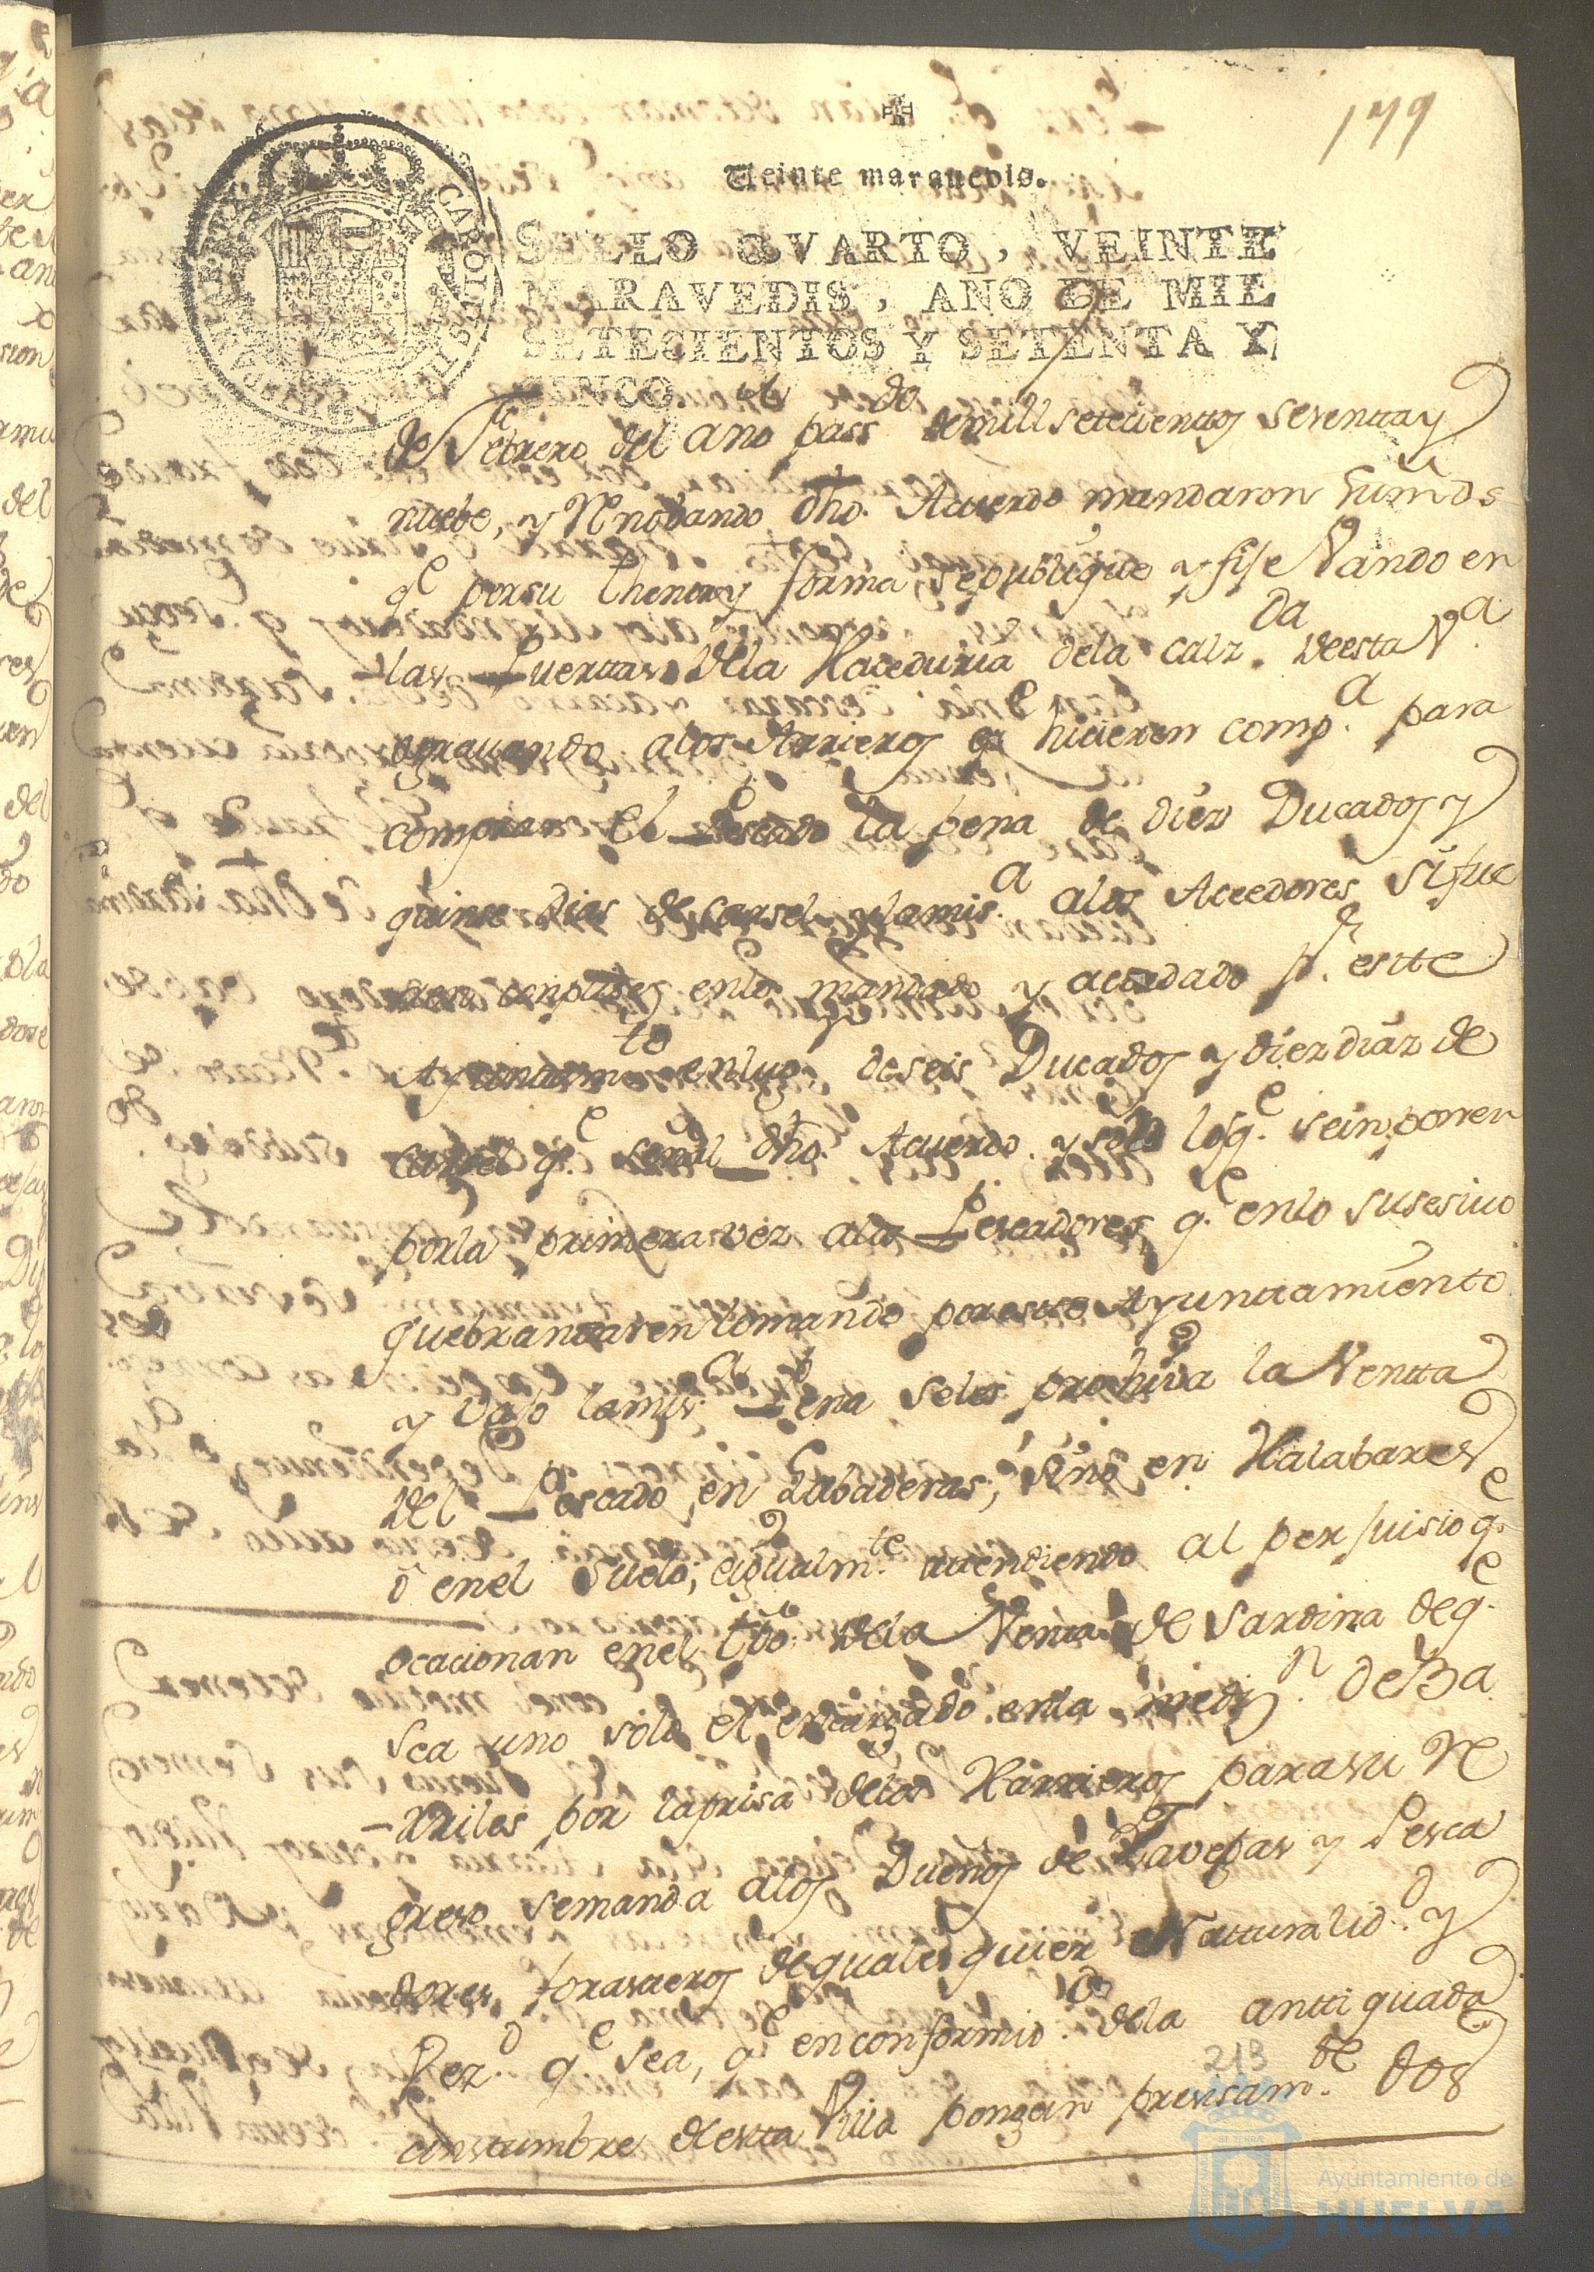 179
Veinte maravedis.
SELLO QVARTO, VEINTE
MARAVEDIS, AÑO DE MIL
SETECIENTOS Y SETENTA Y
CINCO.
CAROLUS III
de Febrero del año pass.do de mill setecientos sesenta y
nuebe, y Renobando dho. Acuerdo mandaron sus mds
q.e por su thenor y forma, se publique y fije Vando en
las Puertas dela Haceduria dela calz.da de esta V.a
agravando alos Arrieros q.e hicieren comp.a para
comprar el Pescado la pena de diez Ducados y
quinse dias de carsel y la mis.a alos Aceedores si fue
ren en lo mandado y acordado p.r este
Ayuntam.to en lug. de seis Ducados y diez diaz de
carsel q.e señal dho. Acuerdo. y solo los q.e se inponen
por la primera vez alos Pescadores q.e en lo susesivo
quebrantaren lo mandado por este Ayuntamiento
y vajo la mis.a Pena se les prohiva la Ventta
del Pescado en Labaderas, sino en Halabares
ô en el suelo; e igualm.te attendiendo al perjuisio q.e
ocacionan en el tpo. dela Venta de Sardina de q.e
sea uno solo el encargado en la medi.n de Ba
-rriles por la prisa delos Harrieros para su Re
greso se manda alos Dueños de Xavegas y Pesca
dores forasteros de quales quier Natturalid.d y
Vez.d q.e sea, q.e en conformid.d dela anttiguada
constumbre de esta Villa pongan presisam.te dos
213
Ayuntamiento de
HUELVA